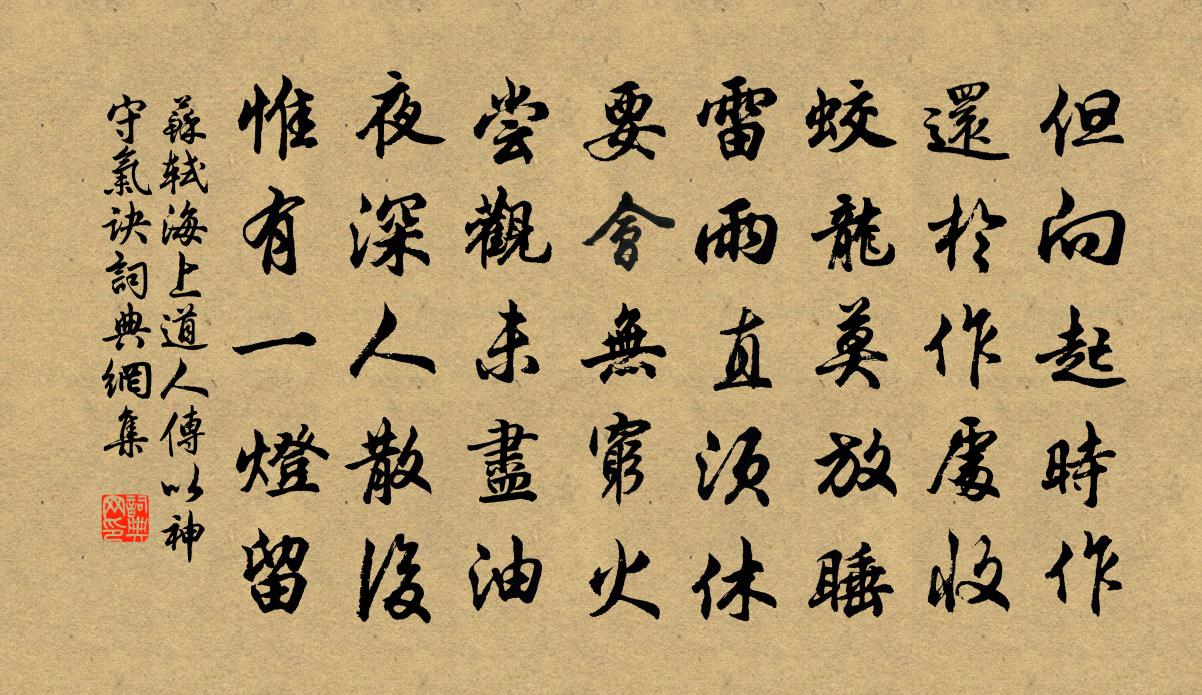 但向起時作
還於作處收
蛟龍莫放睡
雷雨直須休
要會無窮火
嘗觀未盡油
夜深人散後
惟有一燈留
蘇軾海上道人傳以神
守氣訣詞典網集
詞典網印